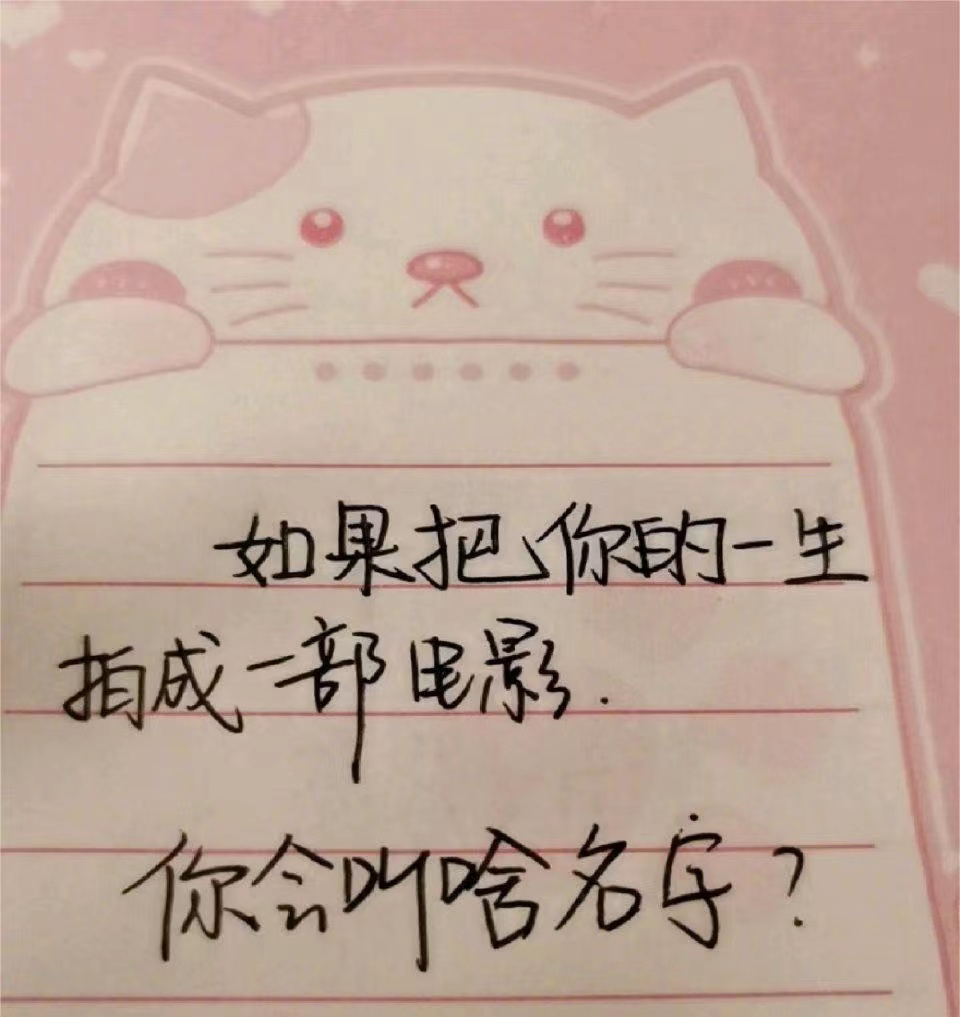 如果把你的一生
拍成一部电影.
你会叫啥名字?